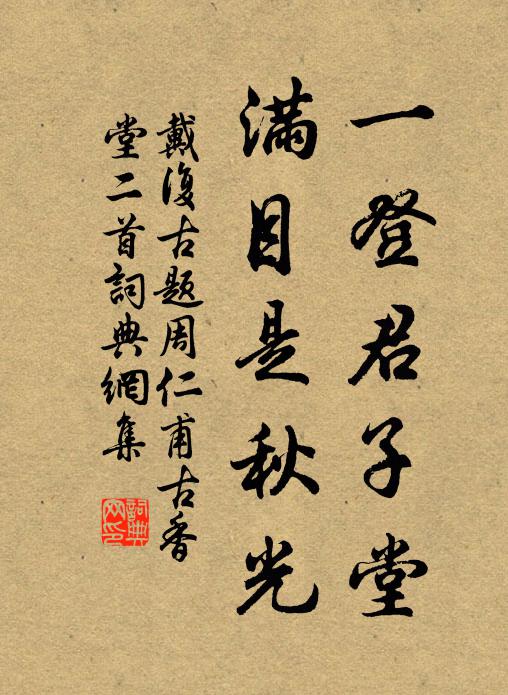 一登君子堂
滿目是秋光
戴復古題周仁甫古香
堂二首詞典網集
詞典
网印